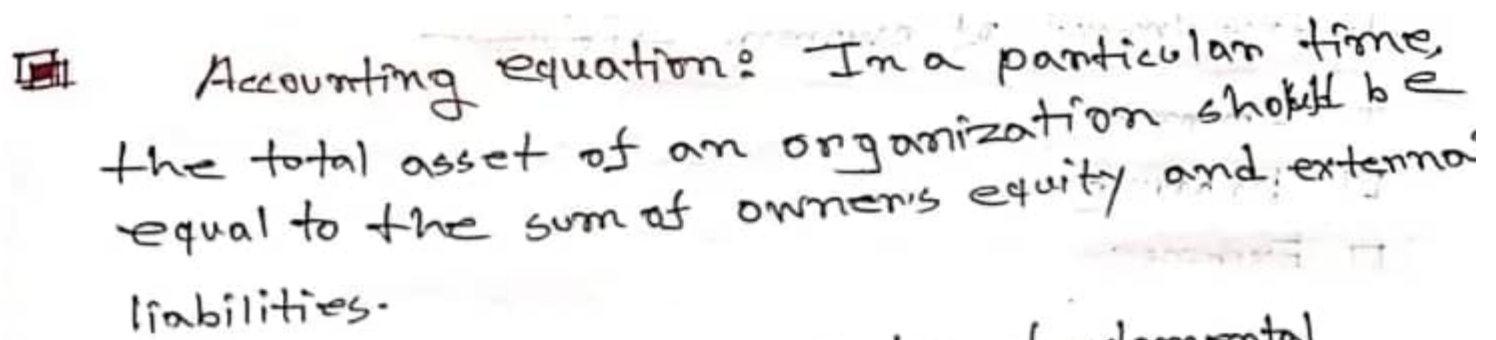 Accounting equation: In a particular time,
the total asset of an organization should be
equal to the sum of owner's equity and external
liabilities.